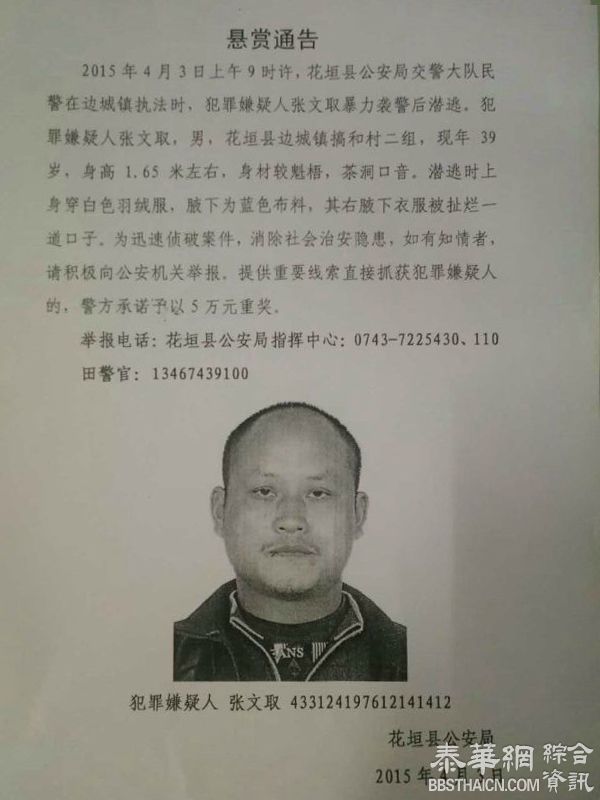 悬赏通告
2015年4月3日上午9时许，花垣县公安局交警大队民
警在边城镇执法时，犯罪嫌疑人张文取暴力袭警后潜逃。犯
罪嫌疑人张文取，男，花垣县边城镇搞和村二组，现年 39
岁，身高 1.65 米左右，身材较魁梧，茶洞口音。潜逃时上
身穿白色羽绒服，腋下为蓝色布料，其右腋下衣服被扯烂一
道口子。为迅速侦破案件，消除社会治安隐患，如有知情者，
请积极向公安机关举报。提供重要线索直接抓获犯罪嫌疑人
的，警方承诺予以5万元重奖。
举报电话：花垣县公安局指挥中心：0743-7225430、110
田警官：13467439100
ANS
犯罪嫌疑人 张文取 433124197612141412
花垣县公安局
2015年4月3日
泰華網 綜合資訊
BBSTHAICN.COM